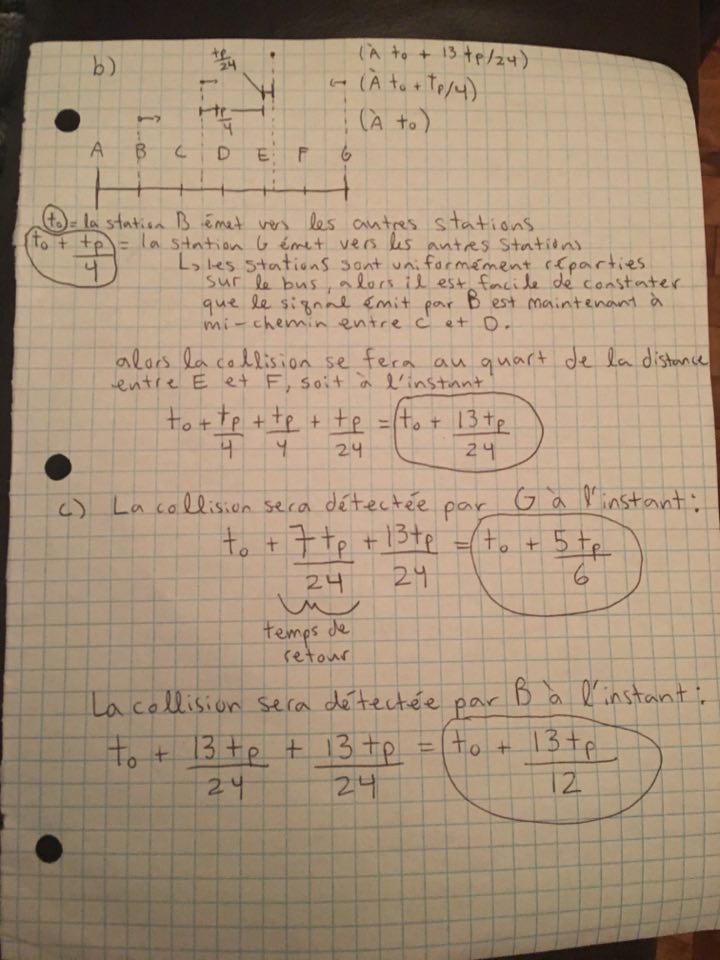 b)
tp/24
(À t₀ + 13tp/24)
(À t₀ + tp/4)
tp/4
(À t₀)
A B C D E F G
t₀ = la station B émet vers les autres stations
t₀ + tp/4 = la station G émet vers les autres stations
↳ les stations sont uniformément réparties
sur le bus, alors il est facile de constater
que le signal émit par B est maintenant à
mi-chemin entre C et D.
alors la collision se fera au quart de la distance
entre E et F, soit à l'instant
t₀ + tp/4 + tp/4 + tp/24 = t₀ + 13tp/24
c) La collision sera détectée par G à l'instant:
t₀ + 7tp/24 + 13tp/24 = t₀ + 5tp/6
temps de
retour
La collision sera détectée par B à l'instant:
t₀ + 13tp/24 + 13tp/24 = t₀ + 13tp/12